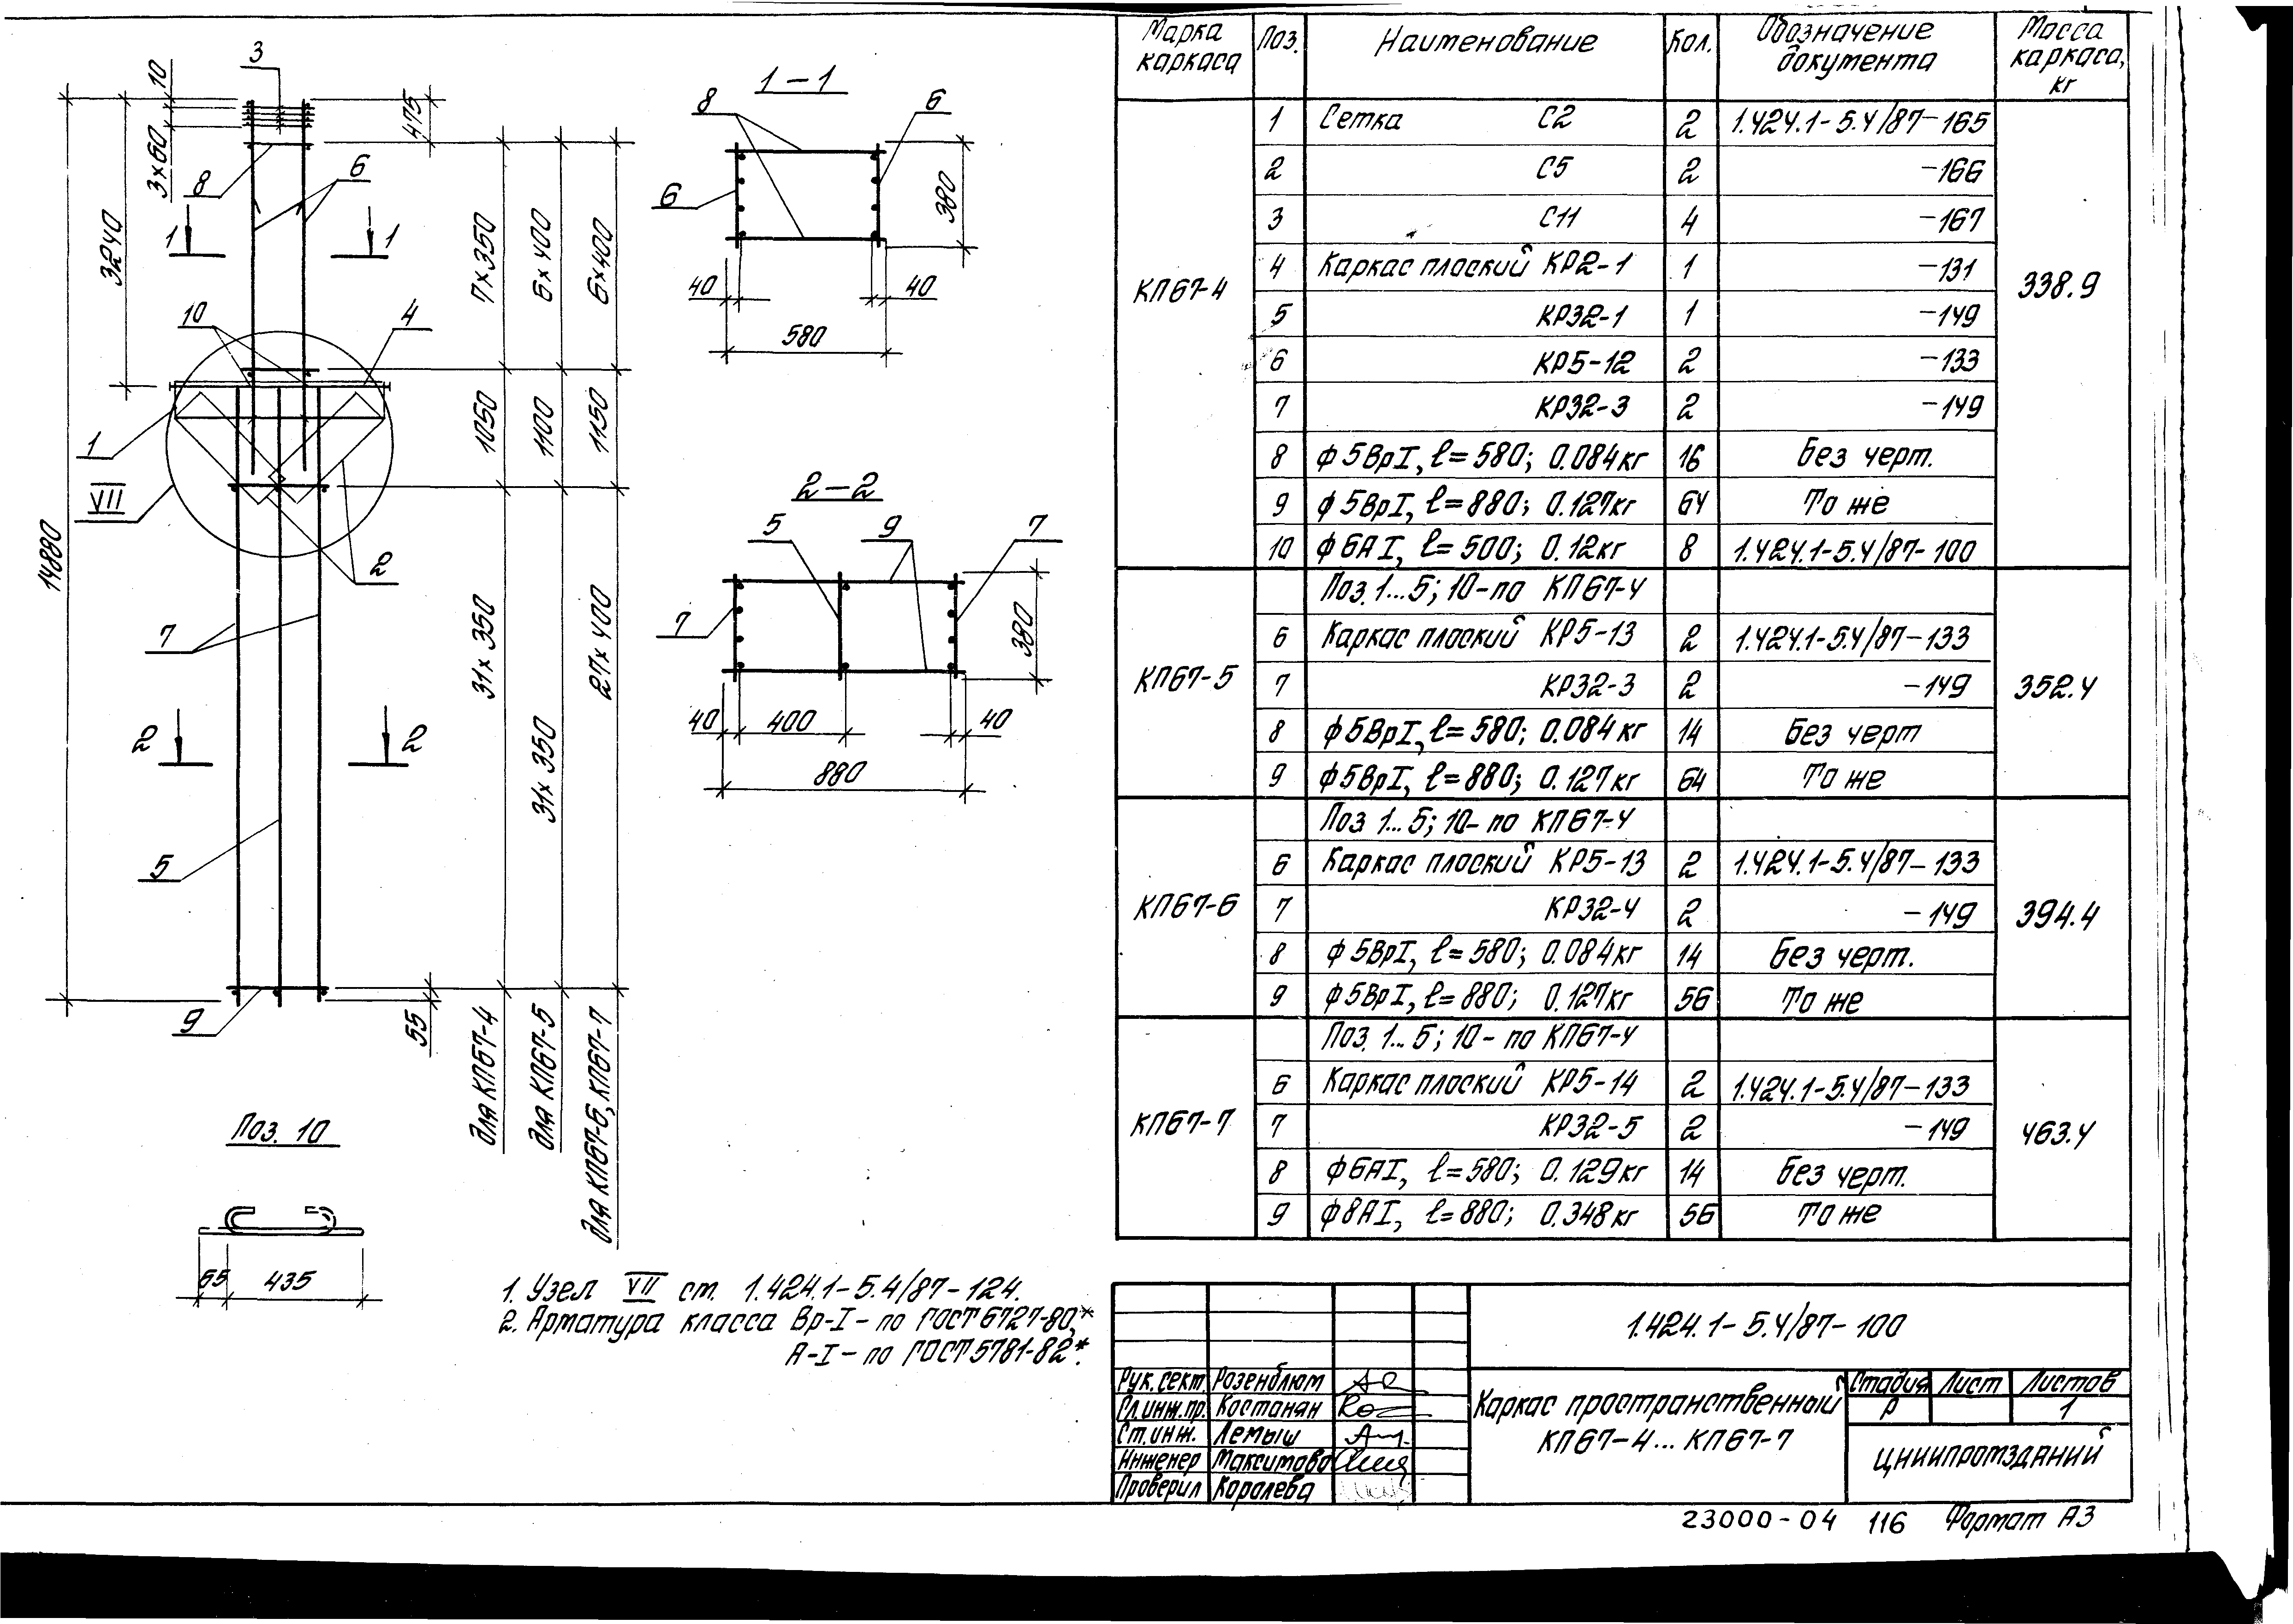 3
10
3×60
475
3240
14880
8
6
1
1
10
4
1
VII
2
7
2
2
5
9
55
7×350
6×400
6×400
1050
1100
1150
31×350
31×350
27×400
для КП67-4
для КП67-5
для КП67-6, КП67-7
1-1
8
6
6
380
40
40
580
2-2
5
9
7
7
380
40
400
40
880
Поз. 10
65
435
1. Узел VII см. 1.424.1-5.4/87-124.
2. Арматура класса Вр-I - по ГОСТ 6727-80,*
А-I - по ГОСТ 5781-82*.
Марка каркаса Поз. Наименование Кол. Обозначение документа Масса каркаса, кг
КП67-4 338.9
1 Сетка С2 2 1.424.1-5.4/87-165
2 С5 2 -166
3 С11 4 -167
4 Каркас плоский КР2-1 1 -131
5 КР32-1 1 -149
6 КР5-12 2 -133
7 КР32-3 2 -149
8 ф5ВрI, ℓ=580; 0.084кг 16 Без черт.
9 ф5ВрI, ℓ=880; 0.127кг 64 То же
10 ф6АI, ℓ=500; 0.12кг 8 1.424.1-5.4/87-100
КП67-5 352.4
Поз. 1...5; 10-по КП67-4
6 Каркас плоский КР5-13 2 1.424.1-5.4/87-133
7 КР32-3 2 -149
8 ф5ВрI, ℓ=580; 0.084кг 14 Без черт
9 ф5ВрI, ℓ=880; 0.127кг 64 То же
КП67-6 394.4
Поз 1...5; 10- по КП67-4
6 Каркас плоский КР5-13 2 1.424.1-5.4/87-133
7 КР32-4 2 -149
8 ф5ВрI, ℓ=580; 0.084кг 14 Без черт.
9 ф5ВрI, ℓ=880; 0.127кг 56 То же
КП67-7 463.4
Поз. 1...5; 10- по КП67-4
6 Каркас плоский КР5-14 2 1.424.1-5.4/87-133
7 КР32-5 2 -149
8 ф6АI, ℓ=580; 0.129кг 14 Без черт.
9 ф8АI, ℓ=880; 0.348кг 56 То же
1.424.1-5.4/87-100
Рук. сект. Розенблюм
Гл. инж. пр. Костанян
Ст. инж. Лемыш
Инженер Максимова
Проверил Королева
Каркас пространственный
КП67-4...КП67-7
Стадия Лист Листов
Р 1
ЦНИИПРОМЗДАНИЙ
23000-04 116 Формат А3